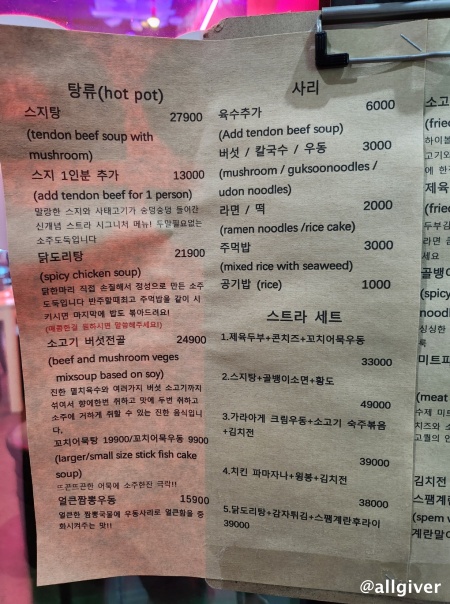 탕류(hot pot)
스지탕 27900
(tendon beef soup with
mushroom)
스지 1인분 추가 13000
(add tendon beef for 1 person)
말랑한 스지와 사태고기가 숭덩숭덩 들어간
신개념 스트라 시그니처 메뉴! 두말필요없는
소주도둑입니다
닭도리탕 21900
(spicy chicken soup)
닭한마리 직접 손질해서 정성으로 만든 소주
도둑입니다 반주할때최고 주먹밥을 같이 시
키시면 마지막에 밥도 볶아드려요!
(매콤한걸 원하시면 말씀해주세요!)
소고기 버섯전골 24900
(beef and mushroom veges
mixsoup based on soy)
진한 멸치육수와 여러가지 버섯 소고기까지
섞여서 향에한번 취하고 맛에 두번 취하고
소주에 거하게 취할 수 있는 진한 음식입니
다.
꼬치어묵탕 19900/꼬치어묵우동 9900
(larger/small size stick fish cake
soup)
뜨끈뜨끈한 어묵에 소주한잔 극락!!
얼큰짬뽕우동 15900
얼큰한 짬뽕국물에 우동사리로 얼큰함을 중
화시켜주는 맛!!
사리
육수추가 6000
(Add tendon beef soup)
버섯 / 칼국수 / 우동 3000
(mushroom / guksoonoodles /
udon noodles)
라면 / 떡 2000
(ramen noodles /rice cake)
주먹밥 3000
(mixed rice with seaweed)
공기밥 (rice) 1000
스트라 세트
1.제육두부+콘치즈+꼬치어묵우동
33000
2.스지탕+골뱅이소면+황도
49000
3.가라아게 크림우동+소고기 숙주볶음
+김치전
39000
4.치킨 파마자나+윙봉+김치전
38000
5.닭도리탕+감자튀김+스팸계란후라이
39000
소고
(fried
하이볼
고기와
에 한
제육
(fried
두부김
라면
세요
골뱅이
(spicy
noodl
싱싱한
룩
미트파
(meat
수제 미트
치즈와 소
고퀄의 안
김치전
스팸계란
(spem
계란말이
@allgiver